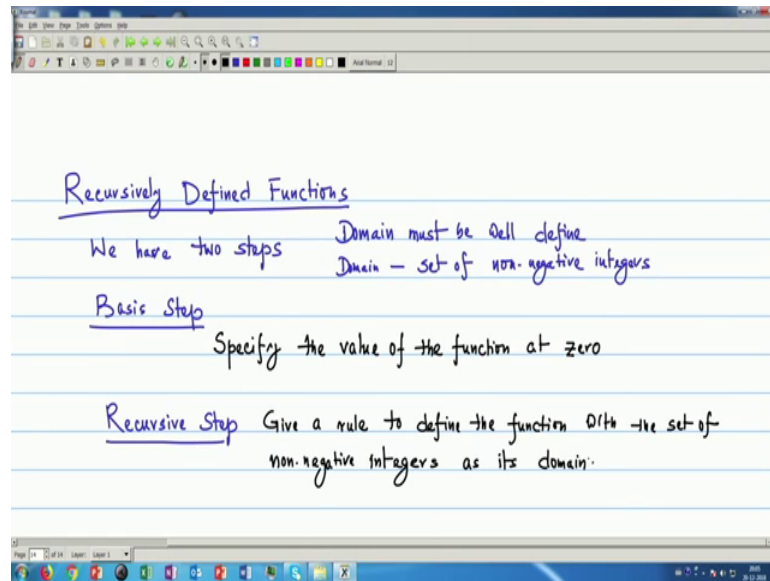 Journal
File Edit View Page Tools Options Help
Arial Normal 12
Recursively Defined Functions
We have two steps
Domain must be well define
Domain — set of non-negative integers
Basis Step
Specify the value of the function at zero
Recursive Step Give a rule to define the function with the set of
non-negative integers as its domain.
Page 14 of 14 Layer: Layer 1
20:05